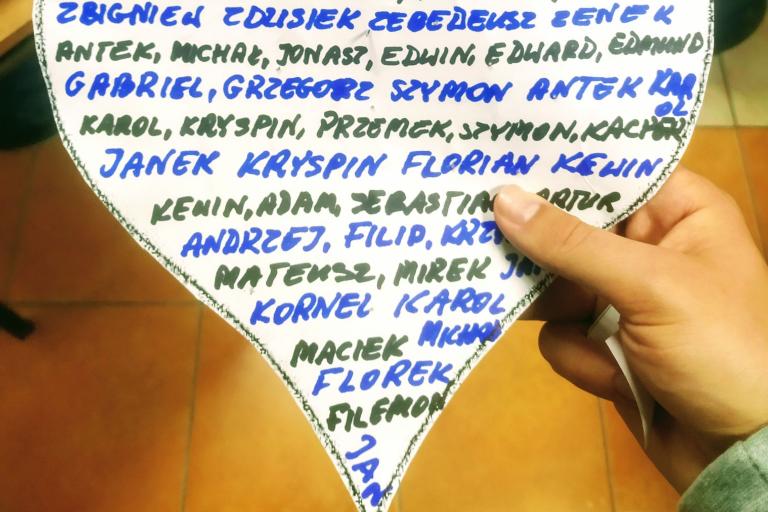 ZBIGNIEW ZDZISIEK ZEBEDEUSZ ZENEK
ANTEK, MICHAŁ, JONASZ, EDWIN, EDWARD, EDMUND
GABRIEL, GRZEGORZ SZYMON ANTEK KAROL
KAROL, KRYSPIN, PRZEMEK, SZYMON, KACPER
JANEK KRYSPIN FLORIAN KEWIN
KEWIN, ADAM, SEBASTIAN
ANDRZEJ, FILIP,
MATEUSZ, MIREK
KORNEL KAROL
MACIEK MICHAŁ
FLOREK
FILEMON
JAN